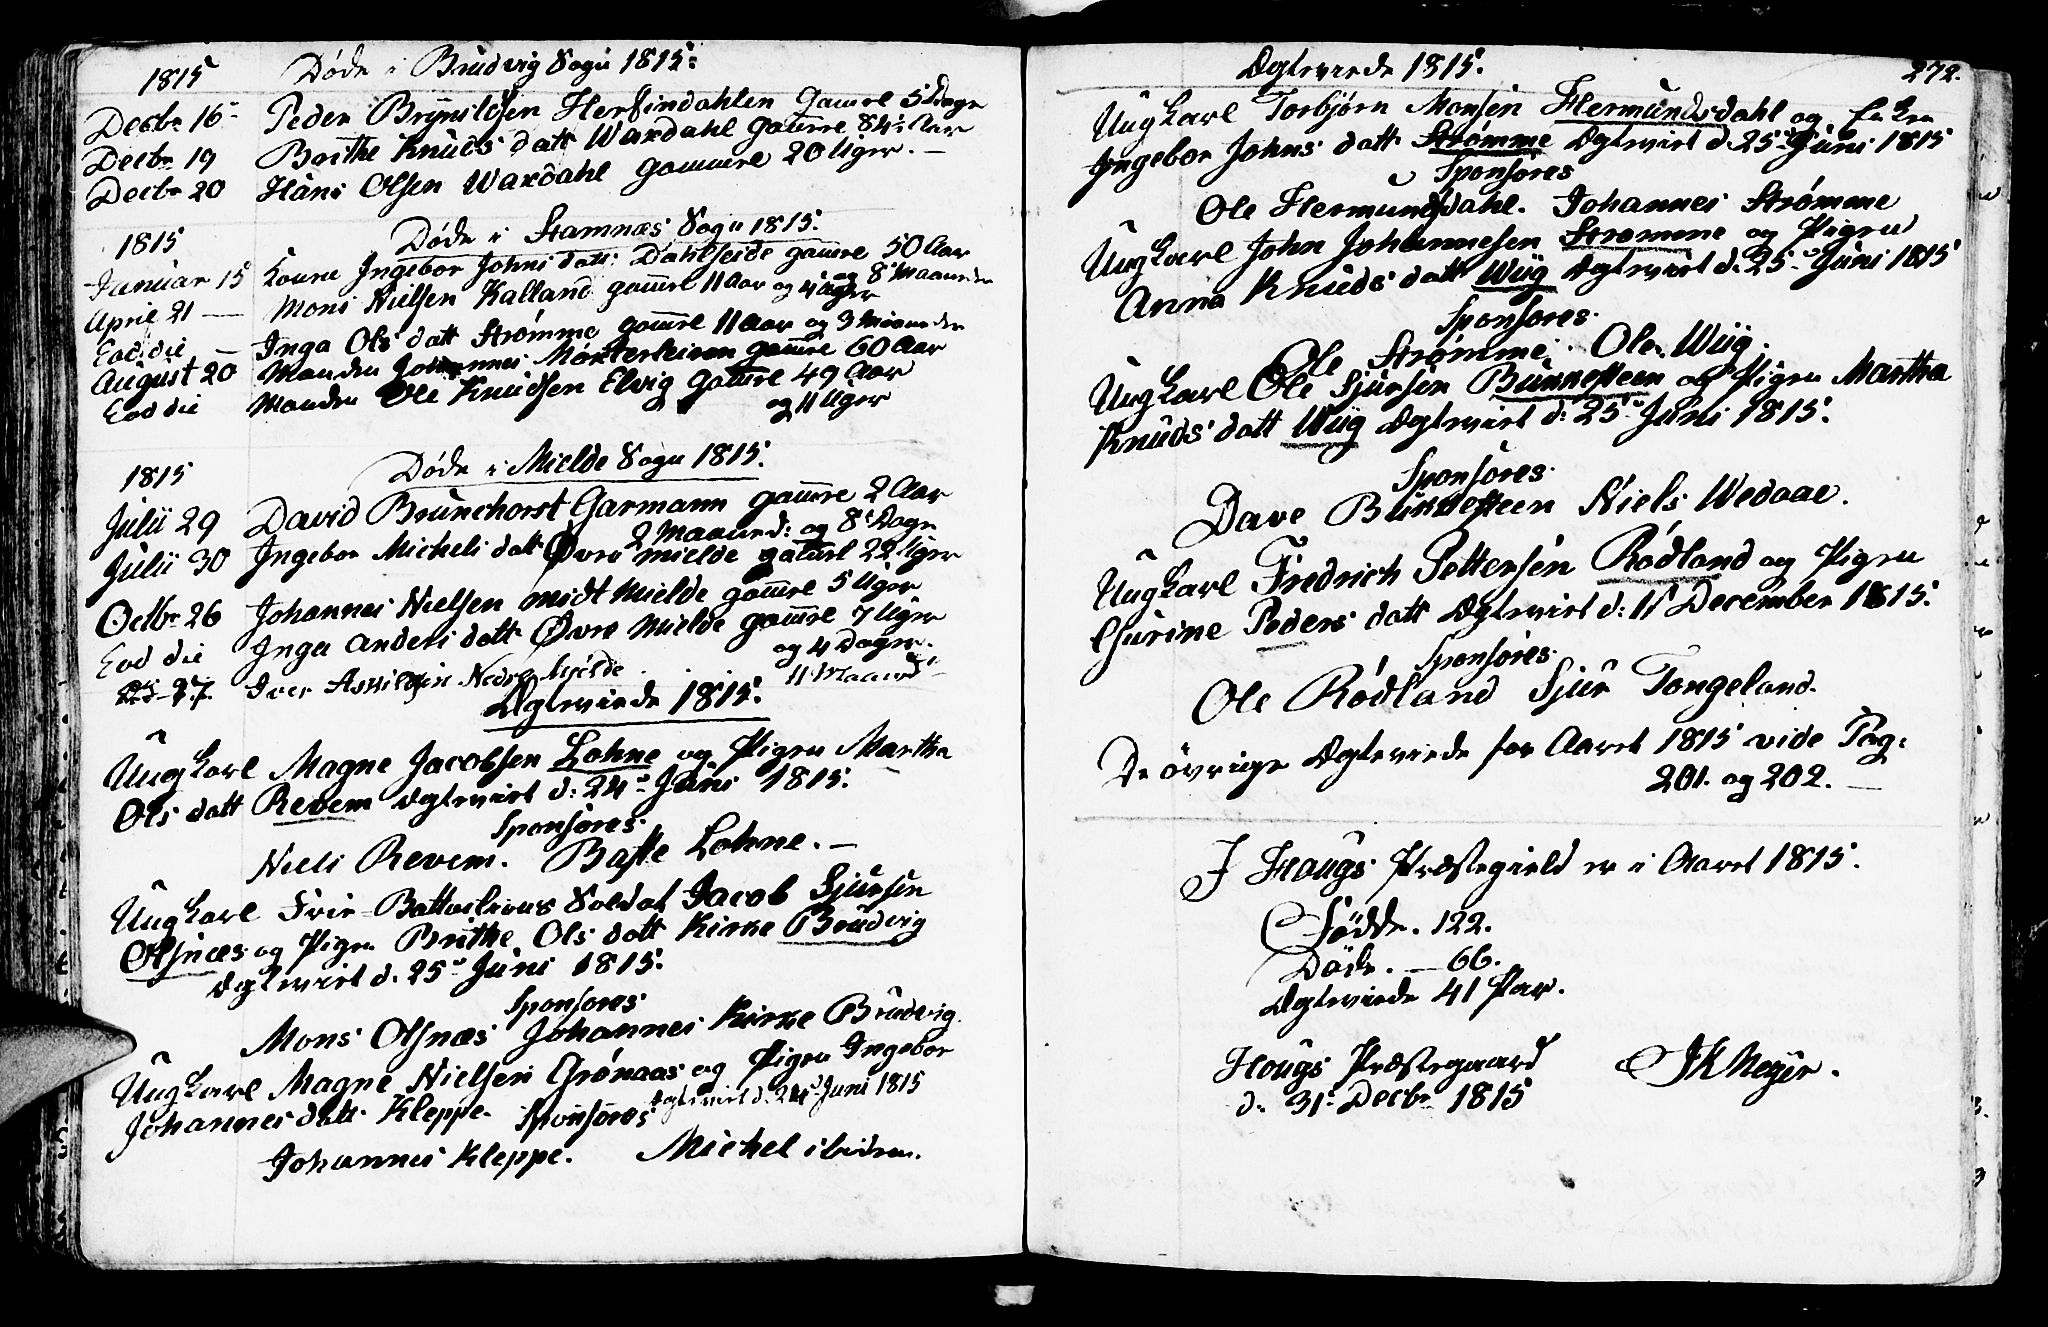 1815
Døde i Brudvig Sogn 1815:
Decbr 16- Peder Brynildsen Herfindahlen gamel 5 Dage
Decbr 19 Brithe Knuds datt Waxdahl gamel 84½ Aar
Decbr 20 Hans Olsen Waxdahl gammel 20 Uger. —
1815 Døde i Stamnæs Sogn 1815.
Januar 15 Konne Ingebor Johns datt: Dahlseide gamel 50 Aar
April 21 — Mons Nielsen Kalland gamel 11 Aar og 8 Maaneder
og 4 Uger
Eod: die Inga Ols datt Strømme gamel 11 Aar og 3 Maaneder
August 20 Manden Johannes Mørterleiren gamel 60 Aar
Eod die Manden Ole Knudsen Elvig gamel 49 Aar
og 11 Uger
1815 Døde i Mielde Sogn 1815.
Julii 29 David Brunchorst Garmann gamel 2 Aar
2 Maaned: og 8 Dage
Julii 30 Ingebor Michels datt Øvre Mielde gamel 22 Uger
Octbr 26 Johannes Nielsen midt Mielde gamel 5 Uger
Eod die Inga Anders datt Øvre Mielde gamel 7 Uger
og 4 Dager.
27. Iver Askildsen Nedre Mjelde 11 Maaned
Ægteviede 1815.
Ung Karl Magne Jacobsen Lohne og Pigen Martha
Ols datt Revem Ægteviet d: 24- Juni 1815.
Sponsores
Niels Revem. Baste Lohne. —
Ung Karl Frie Battailions Soldat Jacob Sjursen
Olsnæs og Pigen Brithe Ols datt Kirke Brudvig
Ægteviet d. 25- Juni 1815.
Sponsores
Mons Olsnæs Johannes Kirke Brudvig.
Ung Karl Magne Nielsen Grønaas og Pigen Ingebor
Johannes datt Kleppe. Ægteviet d: 24 Juni 1815
Sponsores
Johannes Kleppe. Michel ibidem.
Ægteviede 1815. 272.
Ung Karl Torbjørn Monsen Hermundsdahl og Enken
Ingebor Johns datt Strømme Ægteviet d. 25- Juni 1815
Sponsores
Ole Hermundsdahl. Johannes Strømme
Ung Karl John Johannesen Strømme og Pigen
Anna Knuds datt Wiig Ægteviet d. 25- Juni 1815
Sponsores.
Ole Strømme. Ole Wiig.
Ung Karl Ole Sjursen Bunnesteen og Pigen Martha
Knuds datt Wiig Ægteviet d: 25- Juni 1815.
Sponsores.
Dave Bunnesteen Niels Wedaae.
Ung Karl Fredrich Pettersen Rødland og Pigen
Gurine Peders datt Ægteviet d: 11 December 1815.
Sponsores.
Ole Rødland Sjur Tongeland.
De øvrige Ægteviede for Aaret 1815 vide Pag:
201. og 202. —
I Hougs Præstegield er i Aaret 1815.
Fødde. 122.
Døde. — 66.
Ægteviede 41 Par.
Hougs Præstegaard
d. 31- Decbr 1815
JKMeyer.